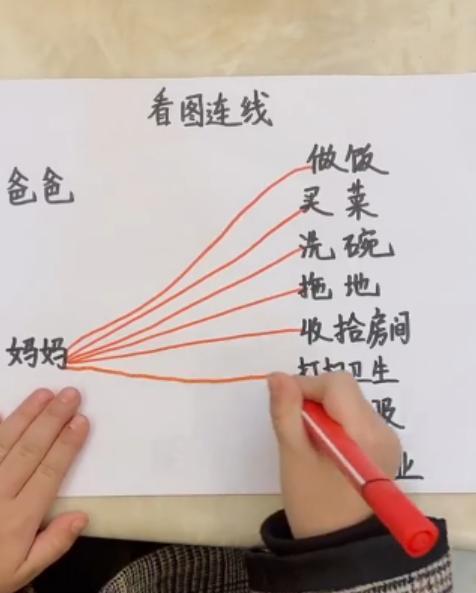 看图连线
爸爸
妈妈
做饭
买菜
洗碗
拖地
收拾房间
打扫卫生